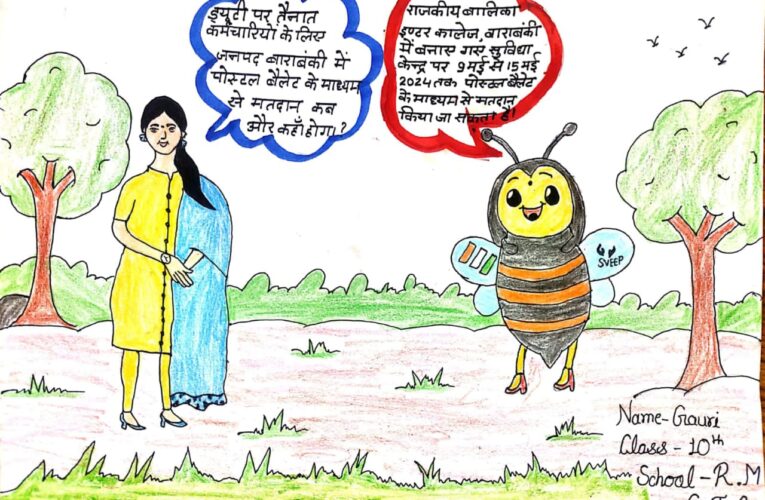 ड्यूटी पर तैनात
कर्मचारियों के लिए
जनपद बाराबंकी में
पोस्टल बैलेट के माध्यम
से मतदान कब
और कहाँ होगा ?
राजकीय बालिका
इण्टर कालेज, बाराबंकी
में बनाए गए सुविधा
केन्द्र पर 9 मई से 15 मई
2024 तक पोस्टल बैलेट
के माध्यम से मतदान
किया जा सकता है।
SVEEP
Name-Gauri
Class - 10th
School-R.M